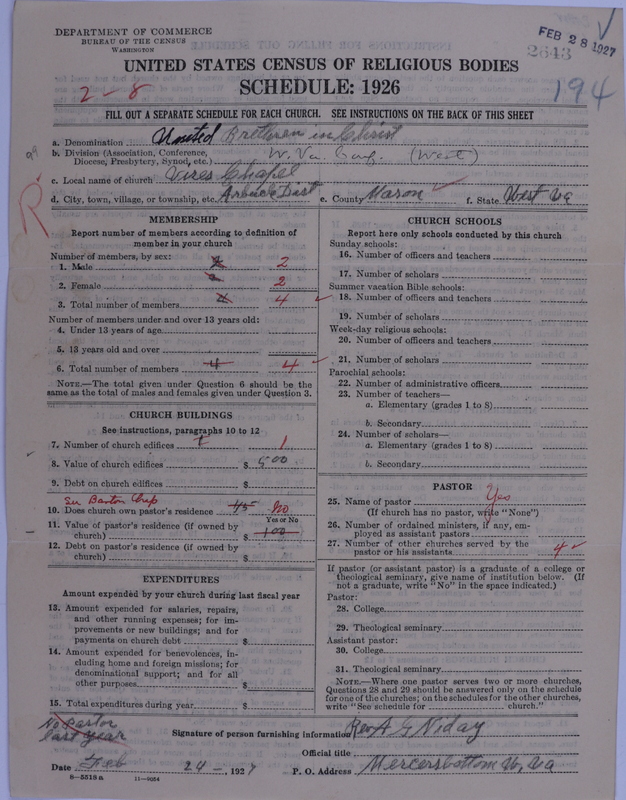 DEPARTMENT OF COMMERCE
BUREAU OF THE CENSUS
WASHINGTON
FEB 28 1927
2643
194
UNITED STATES CENSUS OF RELIGIOUS BODIES
2-8
SCHEDULE: 1926
FILL OUT A SEPARATE SCHEDULE FOR EACH CHURCH. SEE INSTRUCTIONS ON THE BACK OF THIS SHEET
a. Denomination United Brethren in Christ
b. Division (Association, Conference, Diocese, Presbytery, Synod, etc.) W. Va. Conf. (West)
c. Local name of church Vires Chapel
d. City, town, village, or township, etc. Arbuckle Dist e. County Mason f. State West Va
MEMBERSHIP
Report number of members according to definition of
member in your church
Number of members, by sex:
1. Male 2 2
2. Female 2 2
3. Total number of members 4 4
Number of members under and over 13 years old:
4. Under 13 years of age
5. 13 years old and over
6. Total number of members 4 4
NOTE.—The total given under Question 6 should be the
same as the total of males and females given under Question 3.
CHURCH BUILDINGS
See instructions, paragraphs 10 to 12
7. Number of church edifices 1 1
8. Value of church edifices $ 500
9. Debt on church edifices $
See Barton Chap
10. Does church own pastor's residence No
Yes or No
11. Value of pastor's residence (if owned by
church) $ 100
12. Debt on pastor's residence (if owned by
church) $
EXPENDITURES
Amount expended by your church during last fiscal year
13. Amount expended for salaries, repairs,
and other running expenses; for im-
provements or new buildings; and for
payments on church debt $
14. Amount expended for benevolences, in-
cluding home and foreign missions; for
denominational support; and for all
other purposes $
15. Total expenditures during year $
CHURCH SCHOOLS
Report here only schools conducted by this church
Sunday schools:
16. Number of officers and teachers
17. Number of scholars
Summer vacation Bible schools:
18. Number of officers and teachers
19. Number of scholars
Week-day religious schools:
20. Number of officers and teachers
21. Number of scholars
Parochial schools:
22. Number of administrative officers
23. Number of teachers—
a. Elementary (grades 1 to 8)
b. Secondary
24. Number of scholars—
a. Elementary (grades 1 to 8)
b. Secondary
PASTOR
25. Name of pastor Yes
(If church has no pastor, write "None")
26. Number of ordained ministers, if any, em-
ployed as assistant pastors
27. Number of other churches served by the
pastor or his assistants 4
If pastor (or assistant pastor) is a graduate of a college or
theological seminary, give name of institution below. (If
not a graduate, write "No" in the space indicated.)
Pastor:
28. College
29. Theological seminary
Assistant pastor:
30. College
31. Theological seminary
NOTE.—Where one pastor serves two or more churches,
Questions 28 and 29 should be answered only on the schedule
for one of the churches; on the schedules for the other churches,
write "See schedule for church."
No Pastor
last year
Signature of person furnishing information Rev A G Niday
Official title
Date Feb 24 -, 1927 P. O. Address Mercersbottom W. Va
8—5518 a 11—9054